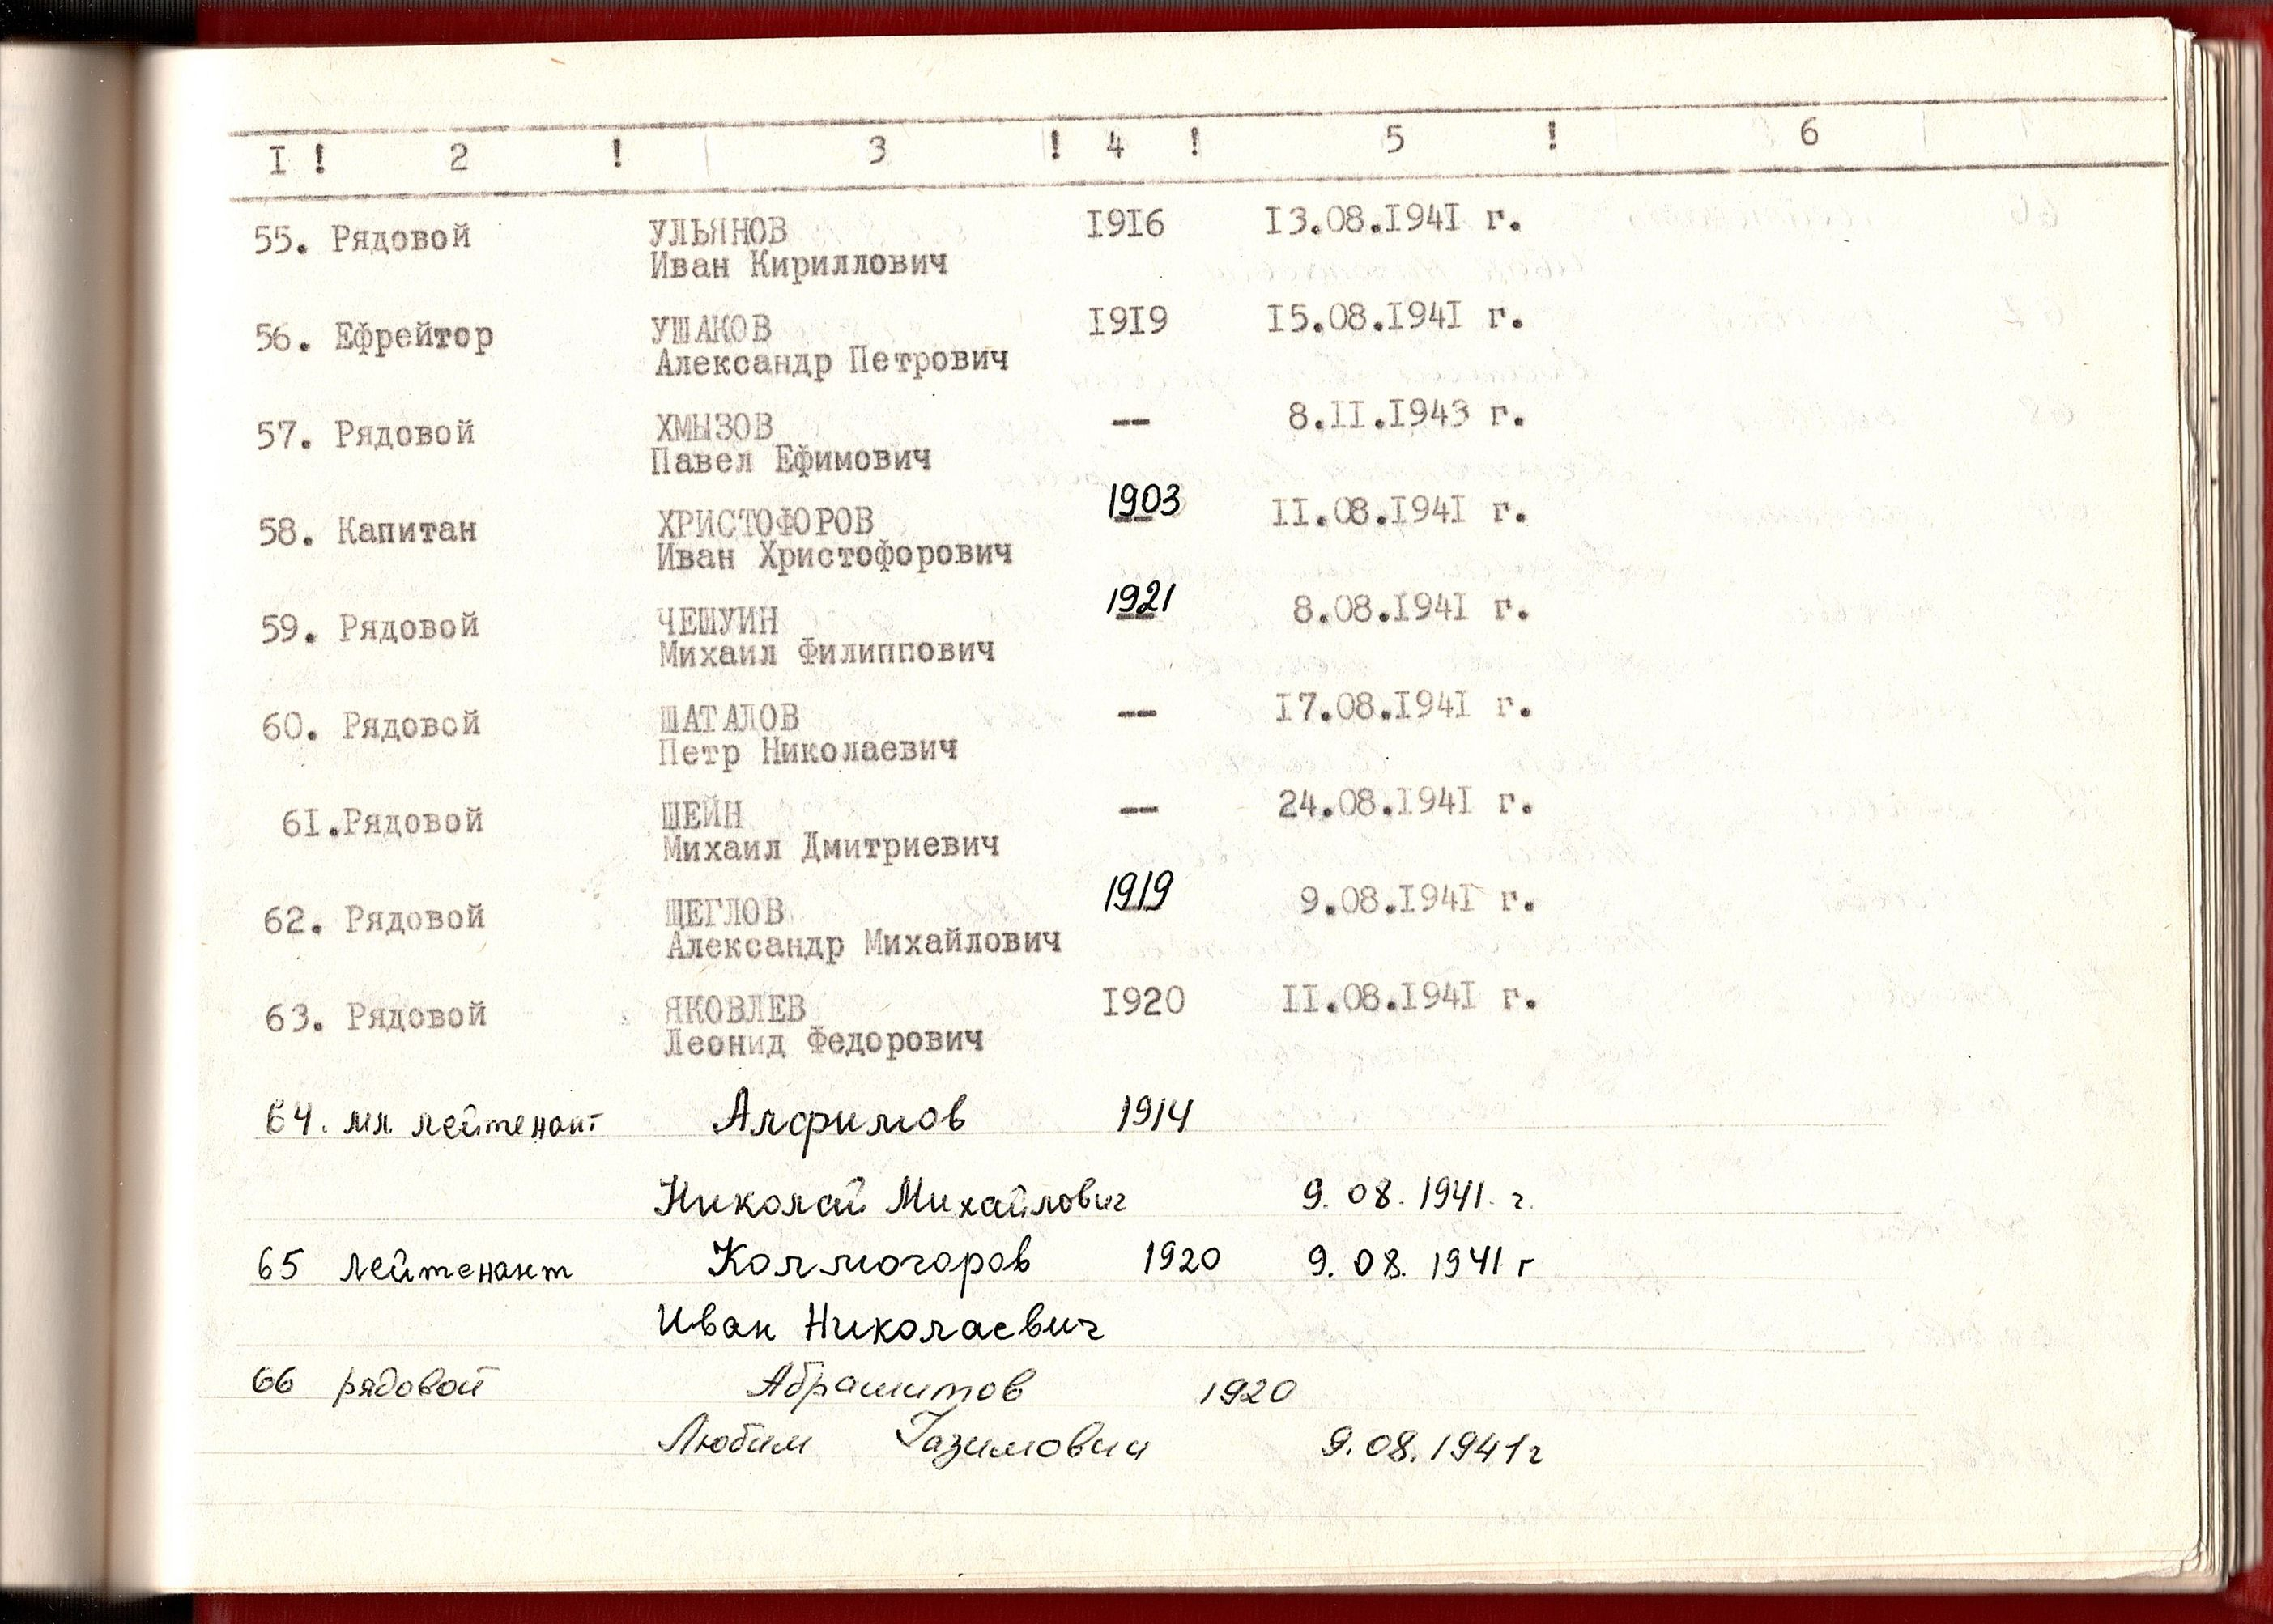 I ! 2 ! 3 ! 4 ! 5 ! 6
55. Рядовой УЛЬЯНОВ 1916 13.08.1941 г.
Иван Кириллович
56. Ефрейтор УШАКОВ 1919 15.08.1941 г.
Александр Петрович
57. Рядовой ХМЫЗОВ -- 8.11.1943 г.
Павел Ефимович
58. Капитан ХРИСТОФОРОВ 1903 11.08.1941 г.
Иван Христофорович
59. Рядовой ЧЕШУИН 1921 8.08.1941 г.
Михаил Филиппович
60. Рядовой ШАТАЛОВ -- 17.08.1941 г.
Петр Николаевич
61.Рядовой ШЕЙН -- 24.08.1941 г.
Михаил Дмитриевич
62. Рядовой ЩЕГЛОВ 1919 9.08.1941 г.
Александр Михайлович
63. Рядовой ЯКОВЛЕВ 1920 11.08.1941 г.
Леонид Федорович
64. мл. лейтенант Алфимов 1914
Николай Михайлович 9.08.1941.г.
65 лейтенант Колмогоров 1920 9.08.1941 г
Иван Николаевич
66 рядовой Абрашитов 1920
Любим Газимович 9.08.1941г